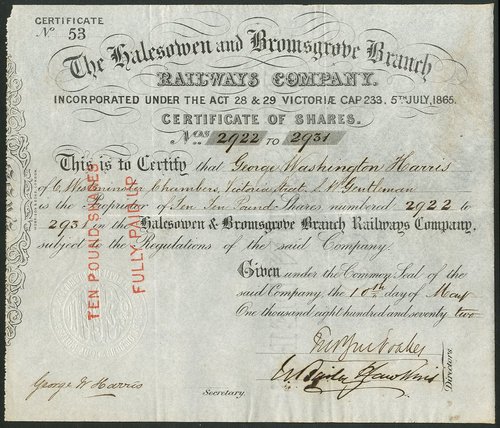 CERTIFICATE
No 53
The Halesowen and Bromsgrove Branch
RAILWAYS COMPANY.
INCORPORATED UNDER THE ACT 28 & 29 VICTORIÆ CAP 233, 5TH JULY, 1865.
CERTIFICATE OF SHARES.
Nos 2922 TO 2931
This is to Certify that George Washington Harris
of 6 Westminster Chambers, Victoria Street, S.W. Gentleman
is the Proprietor of Ten Ten Pounds Shares numbered 2922 to
2931 in the Halesowen & Bromsgrove Branch Railways Company,
subject to the Regulations of the said Company.
Given under the Common Seal of the
said Company the 10th day of May
One thousand eight hundred and seventy two
TEN POUND SHARES
FULLY PAID UP
Directors
George W Harris
Secretary.